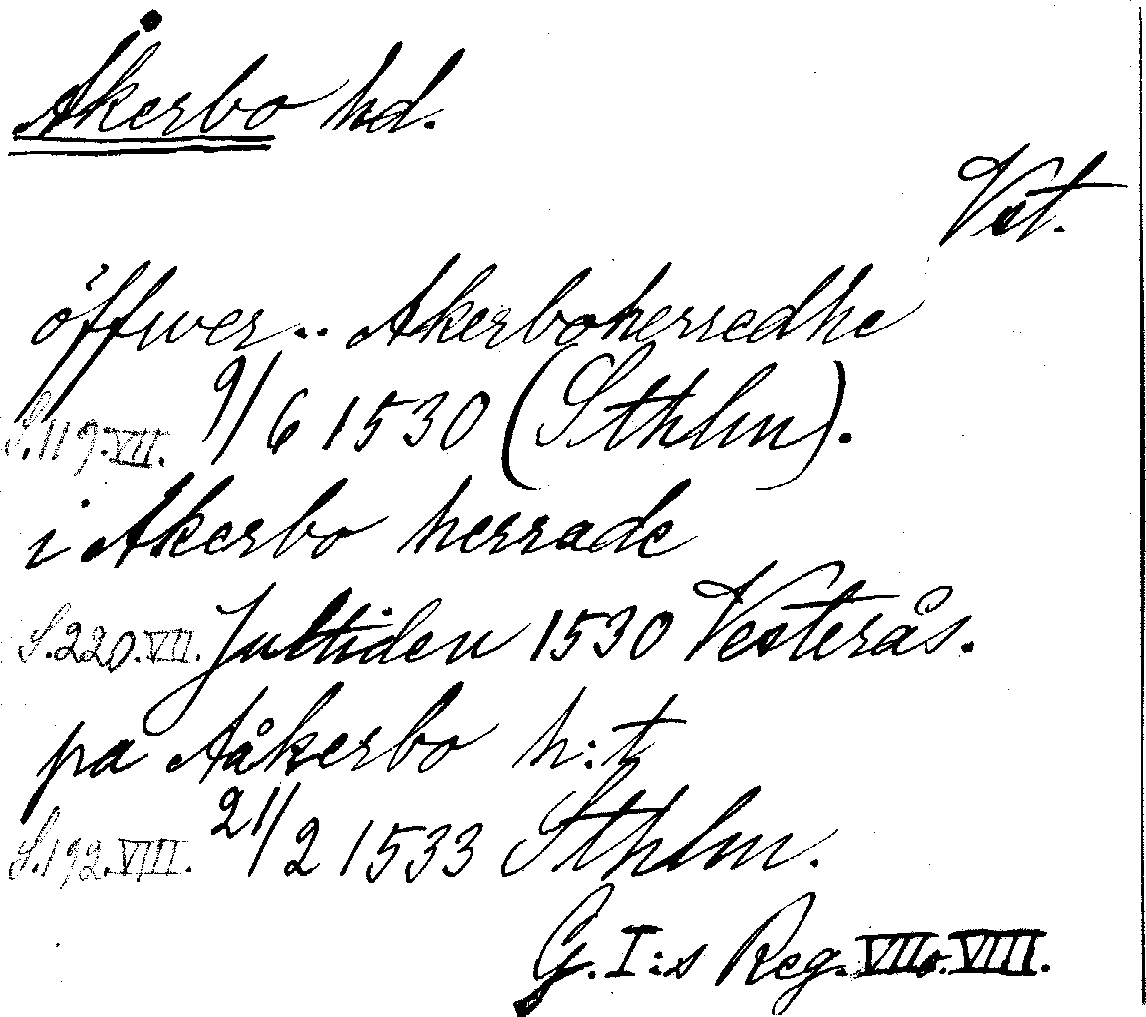 Åkerbo hd.
Vst.
öffwer.. Akerboherredhe
S.119.VII. 9/6 1530 (Sthlm).
i Akerbo herrade
S.220.VII. Jultiden 1530 Vesterås.
pa Aåkerbo h:t
S.192.VIII. 21/2 1533 Sthlm.
G.I:s Reg. VII o. VIII.